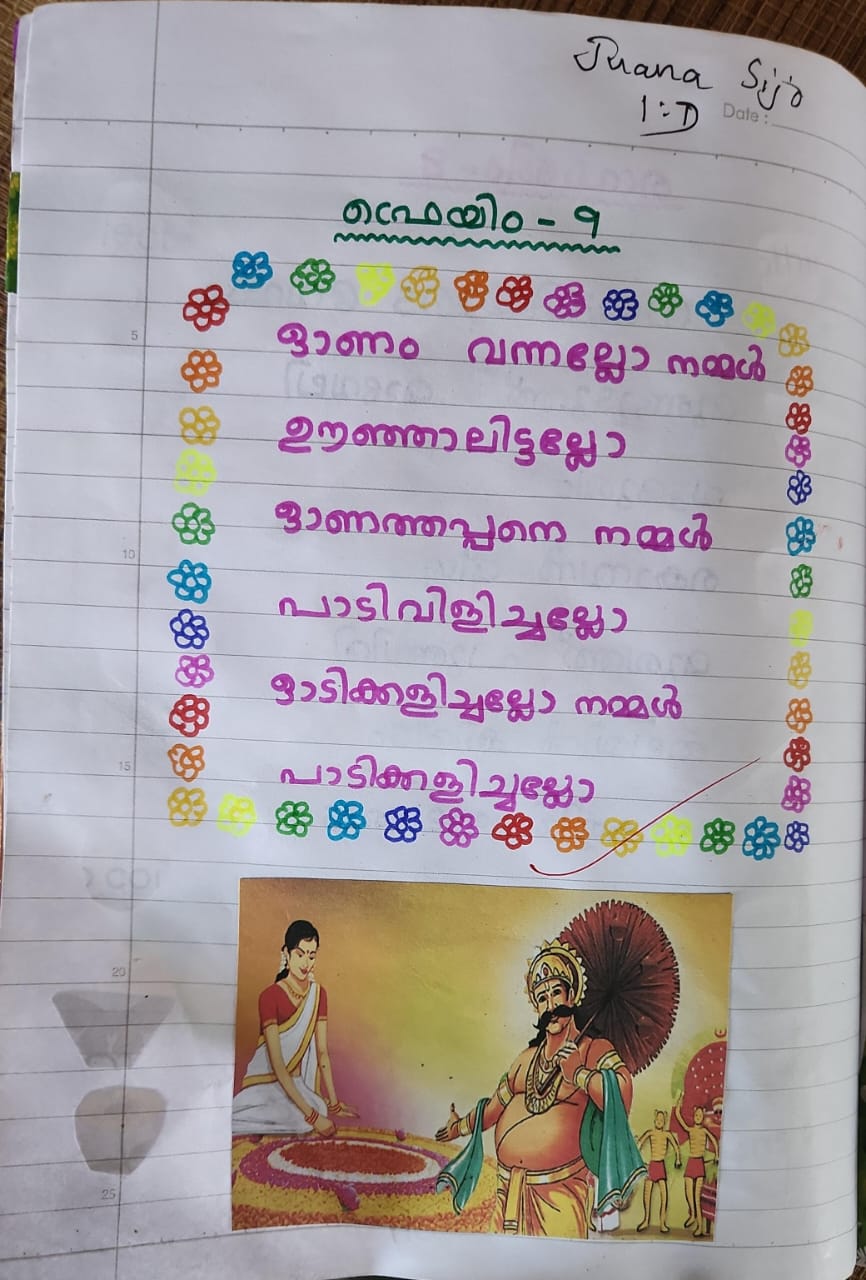 Juana Sijo
1:D
Date :
ഫ്രെയിം - 9
ഓണം വന്നല്ലോ നമ്മൾ
5
ഊഞ്ഞാലിട്ടല്ലോ
ഓണത്തപ്പനെ നമ്മൾ
10
പാടിവിളിച്ചല്ലോ
ഓടിക്കളിച്ചല്ലോ നമ്മൾ
15
പാടിക്കളിച്ചല്ലോ
20
25